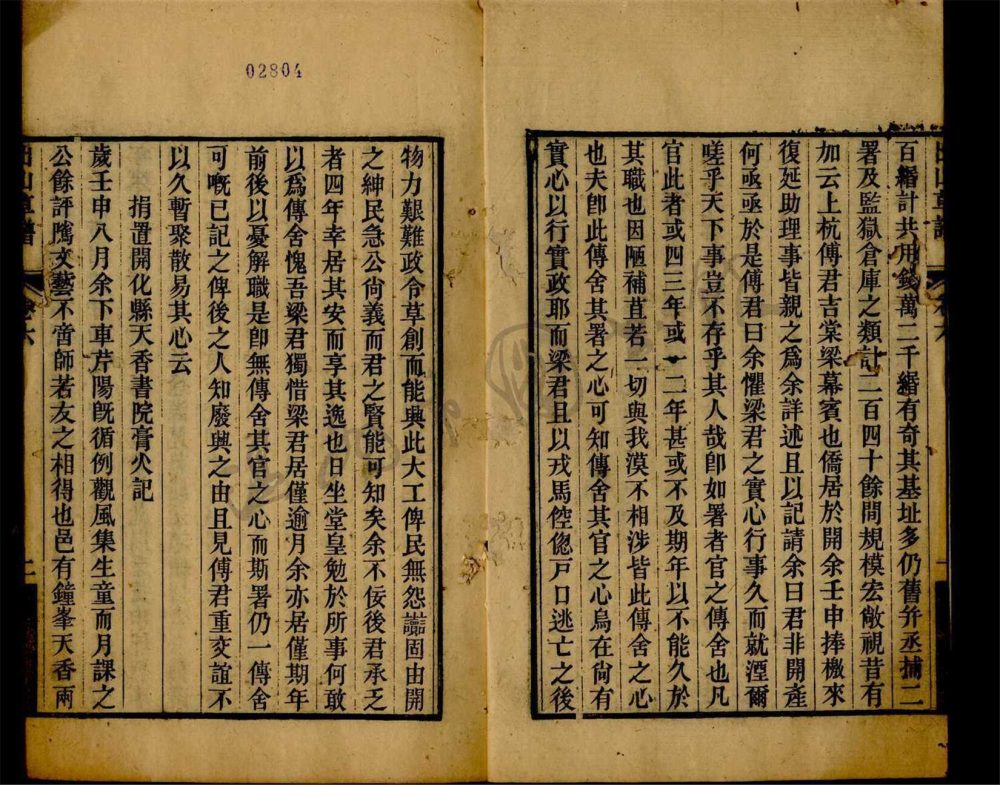 百緡計共用錢萬二千緡有奇其基址多仍舊弁丞捕二
署及監獄倉庫之類計二百四十餘間規模宏敞視昔有
加云上杭傅君吉棠梁幕賓也僑居於開余壬申捧檄來
復延助理事皆親之爲余詳述且以記請余曰君非開產
何亟亟於是傅君曰余懼梁君之實心行事久而就湮爾
嗟乎天下事豈不存乎其人哉卽如署者官之傳舍也凡
官此者或四三年或一二年甚或不及期年以不能久於
其職也因陋補苴若一切與我漠不相涉皆此傳舍之心
也夫卽此傳舍其署之心可知傳舍其官之心烏在尙有
實心以行實政耶而梁君且以戎馬倥偬戸口逃亡之後
物力艱難政令草創而能興此大工俾民無怨讟固由開
之紳民急公尙義而君之賢能可知矣余不佞後君承乏
者四年幸居其安而享其逸也日坐堂皇勉於所事何敢
以爲傳舍愧吾梁君獨惜梁君居僅逾月余亦居僅期年
前後以憂解職是卽無傳舍其官之心而斯署仍一傳舍
可嘅已記之俾後之人知廢興之由且見傅君重交誼不
以久暫聚散易其心云
捐置開化縣天香書院膏火記
歲壬申八月余下車芹陽旣循例觀風集生童而月課之
公餘評騭文藝不啻師若友之相得也邑有鐘峯天香兩
卷六
二
02804